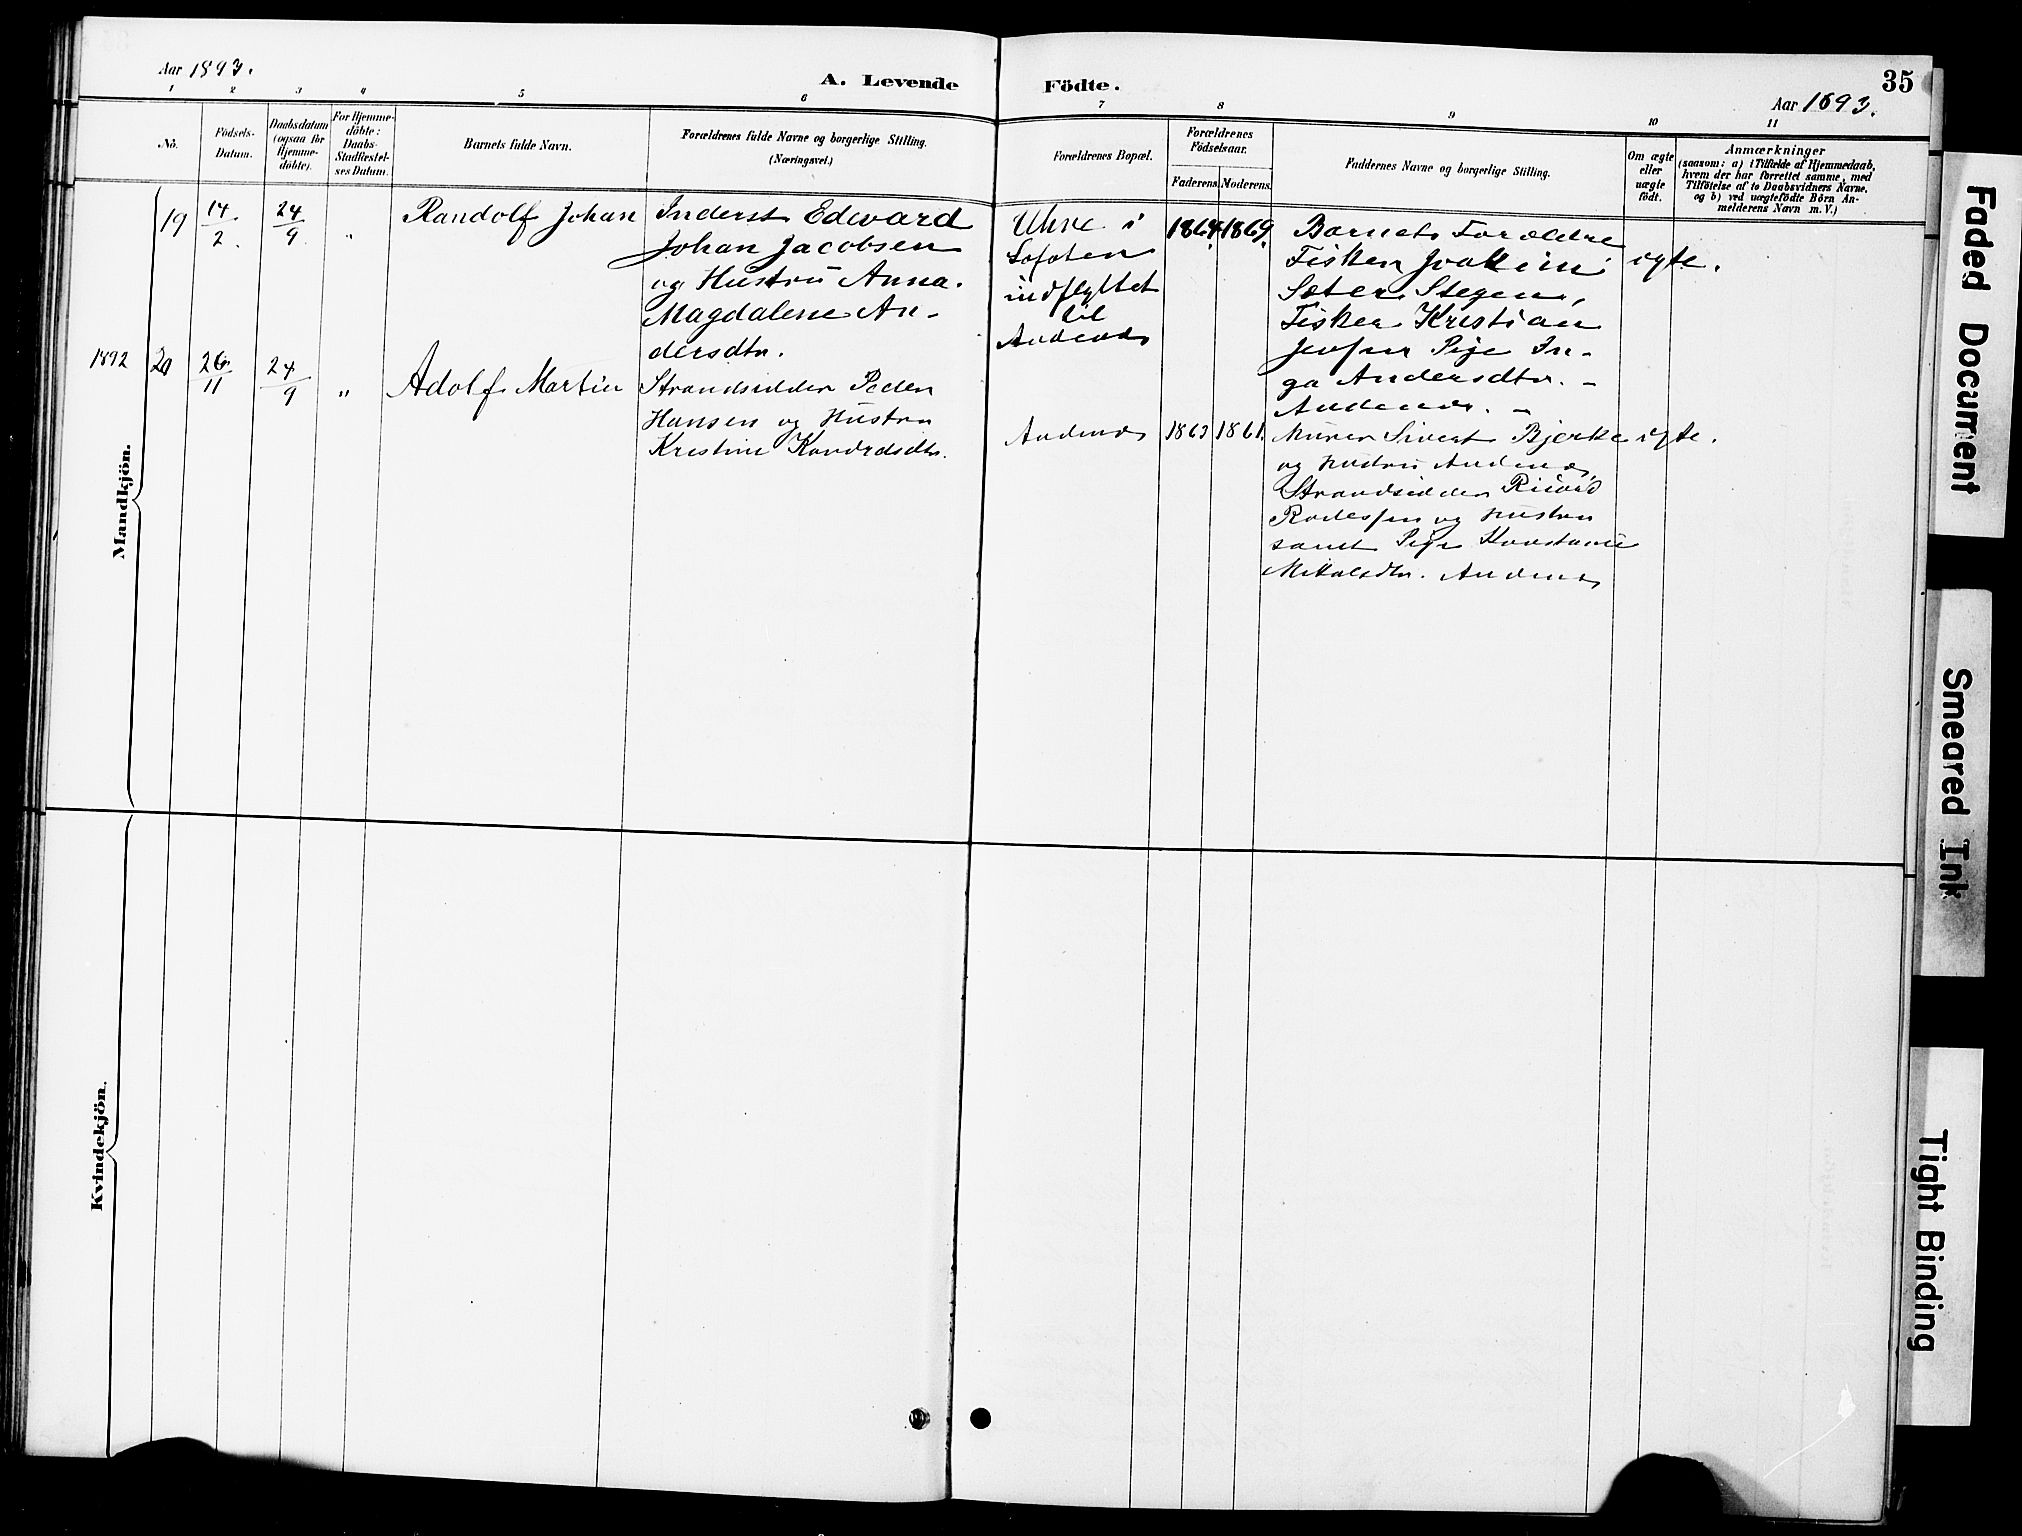 Aar 1893.
A. Levende
Födte.
35
Aar 1893.
1 2 3 4 5 6 7 8 9 10 11
No.
Födsels-
Datum.
Daabsdatum
(ogsaa for
Hjemme-
döbte).
For Hjemme-
döbte:
Daabs-
Stadfæstel-
ses Datum.
Barnets fulde Navn.
Forældrenes fulde Navne og borgerlige Stilling.
(Næringsvei.)
Forældrenes Bopæl.
Forældrenes
Födselsaar.
Faderens.
Moderens.
Faddernes Navne og borgerlige Stilling.
Om ægte
eller
uægte
födt.
Anmærkninger
(saasom: a) i Tilfælde af Hjemmedaab,
hvem der har forrettet samme, med
Tilföielse af to Daabsvidners Navne.
og b) ved uægtefödte Börn An-
melderens Navn m. V.)
Mandkjön.
19
14/2.
24/9.
"
Randolf Johan
Inderst Edevard
Johan Jacobsen
og Hustru Anna
Magdalene An-
dersdtr.
Uhre i
Lofoten
indflyttet
til
Andenæs
1864.
1869.
Barnets Forældre
Fisker Joakim
Sæter Stegen,
Fisker Kristian
Jensen Pige In-
ga Andersdtr. -
Andenæs. -
ægte.
1892
20
26/11
24/9
"
Adolf Martin
Strandsidder Peder
Hansen og Hustru
Kristine Konrdsdtr.
Andenæs
1863
1861.
Murer Sivert Bjerke
og Hustru Andenæs,
Strandsidder
og Hustru
samt Pige Konstanse
Mikalsdtr. Andenæs
ægte.
Kvindekjön.
Faded Document
Smeared Ink
Tight Binding